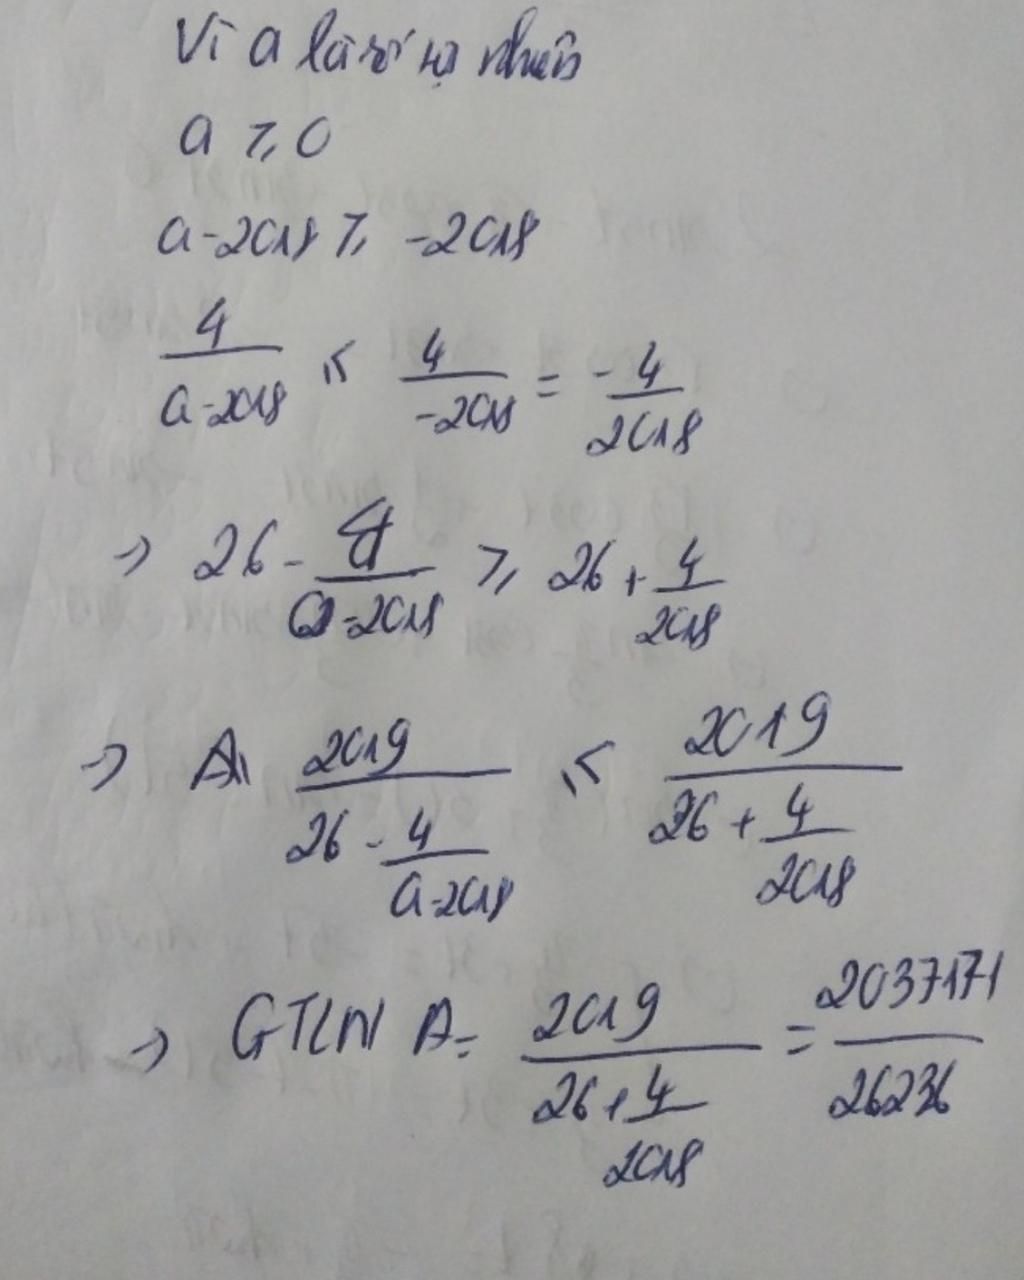 Vì a là số tự nhiên
a ⩾ 0
a - 2018 ⩾ -2018
4/(a - 2018) ⩽ 4/(-2018) = -4/2018
=> 26 - 4/(a - 2018) ⩾ 26 + 4/2018
=> A = 2019/(26 - 4/(a - 2018)) ⩽ 2019/(26 + 4/2018)
=> GTLN A = 2019/(26 + 4/2018) = 2037171/26236